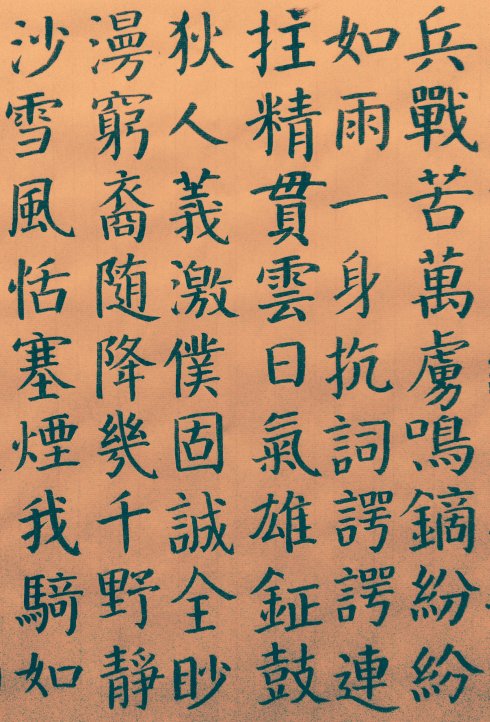 兵戰苦萬虜鳴鏑紛紛
如雨一身抗詞諤諤連
拄精貫雲日氣雄鉦鼓
狄人義激僕固誠全眇
漫窮裔随降幾千野靜
沙雪風恬塞煙我騎如